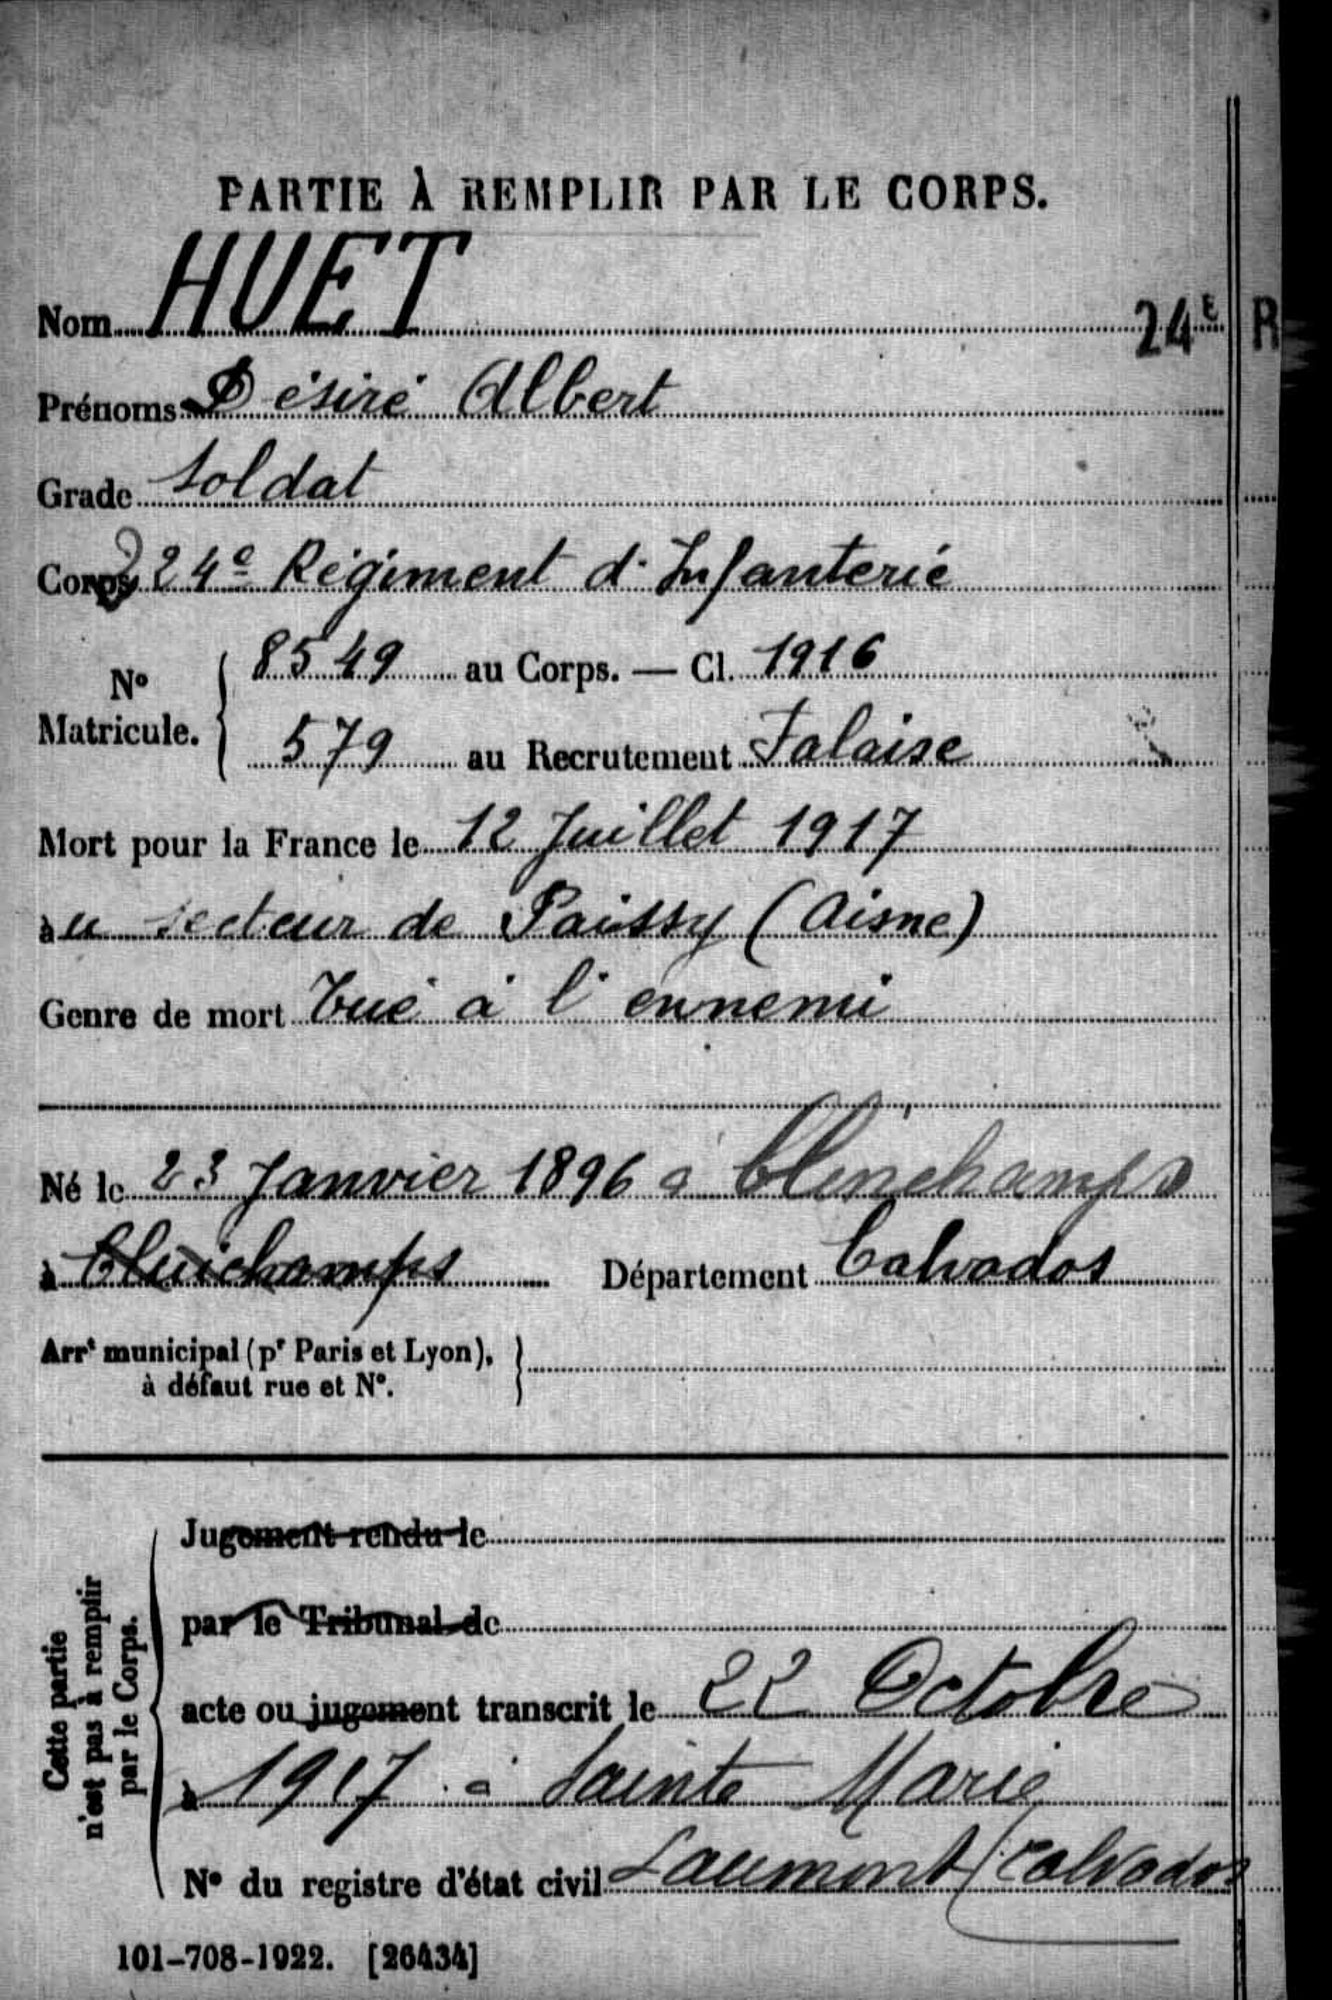 PARTIE À REMPLIR PAR LE CORPS.
Nom HUET 24E R
Prénoms Désiré Albert
Grade Soldat
Corps 224e Régiment d'Infanterie
No Matricule. 8549 au Corps. — Cl. 1916
579 au Recrutement Falaise
Mort pour la France le 12 Juillet 1917
au secteur de Paissy (Aisne)
Genre de mort Tué à l'ennemi
Né le 23 Janvier 1896 à Clinchamps
à Clinchamps Département Calvados
Arrt municipal (pr Paris et Lyon),
à défaut rue et No.
Cette partie
n'est pas à remplir
par le Corps.
Jugement rendu le
par le Tribunal de
acte ou jugement transcrit le 22 Octobre
à 1917 à Sainte Marie
No du registre d'état civil Laumont (Calvados
101-708-1922. [26434]